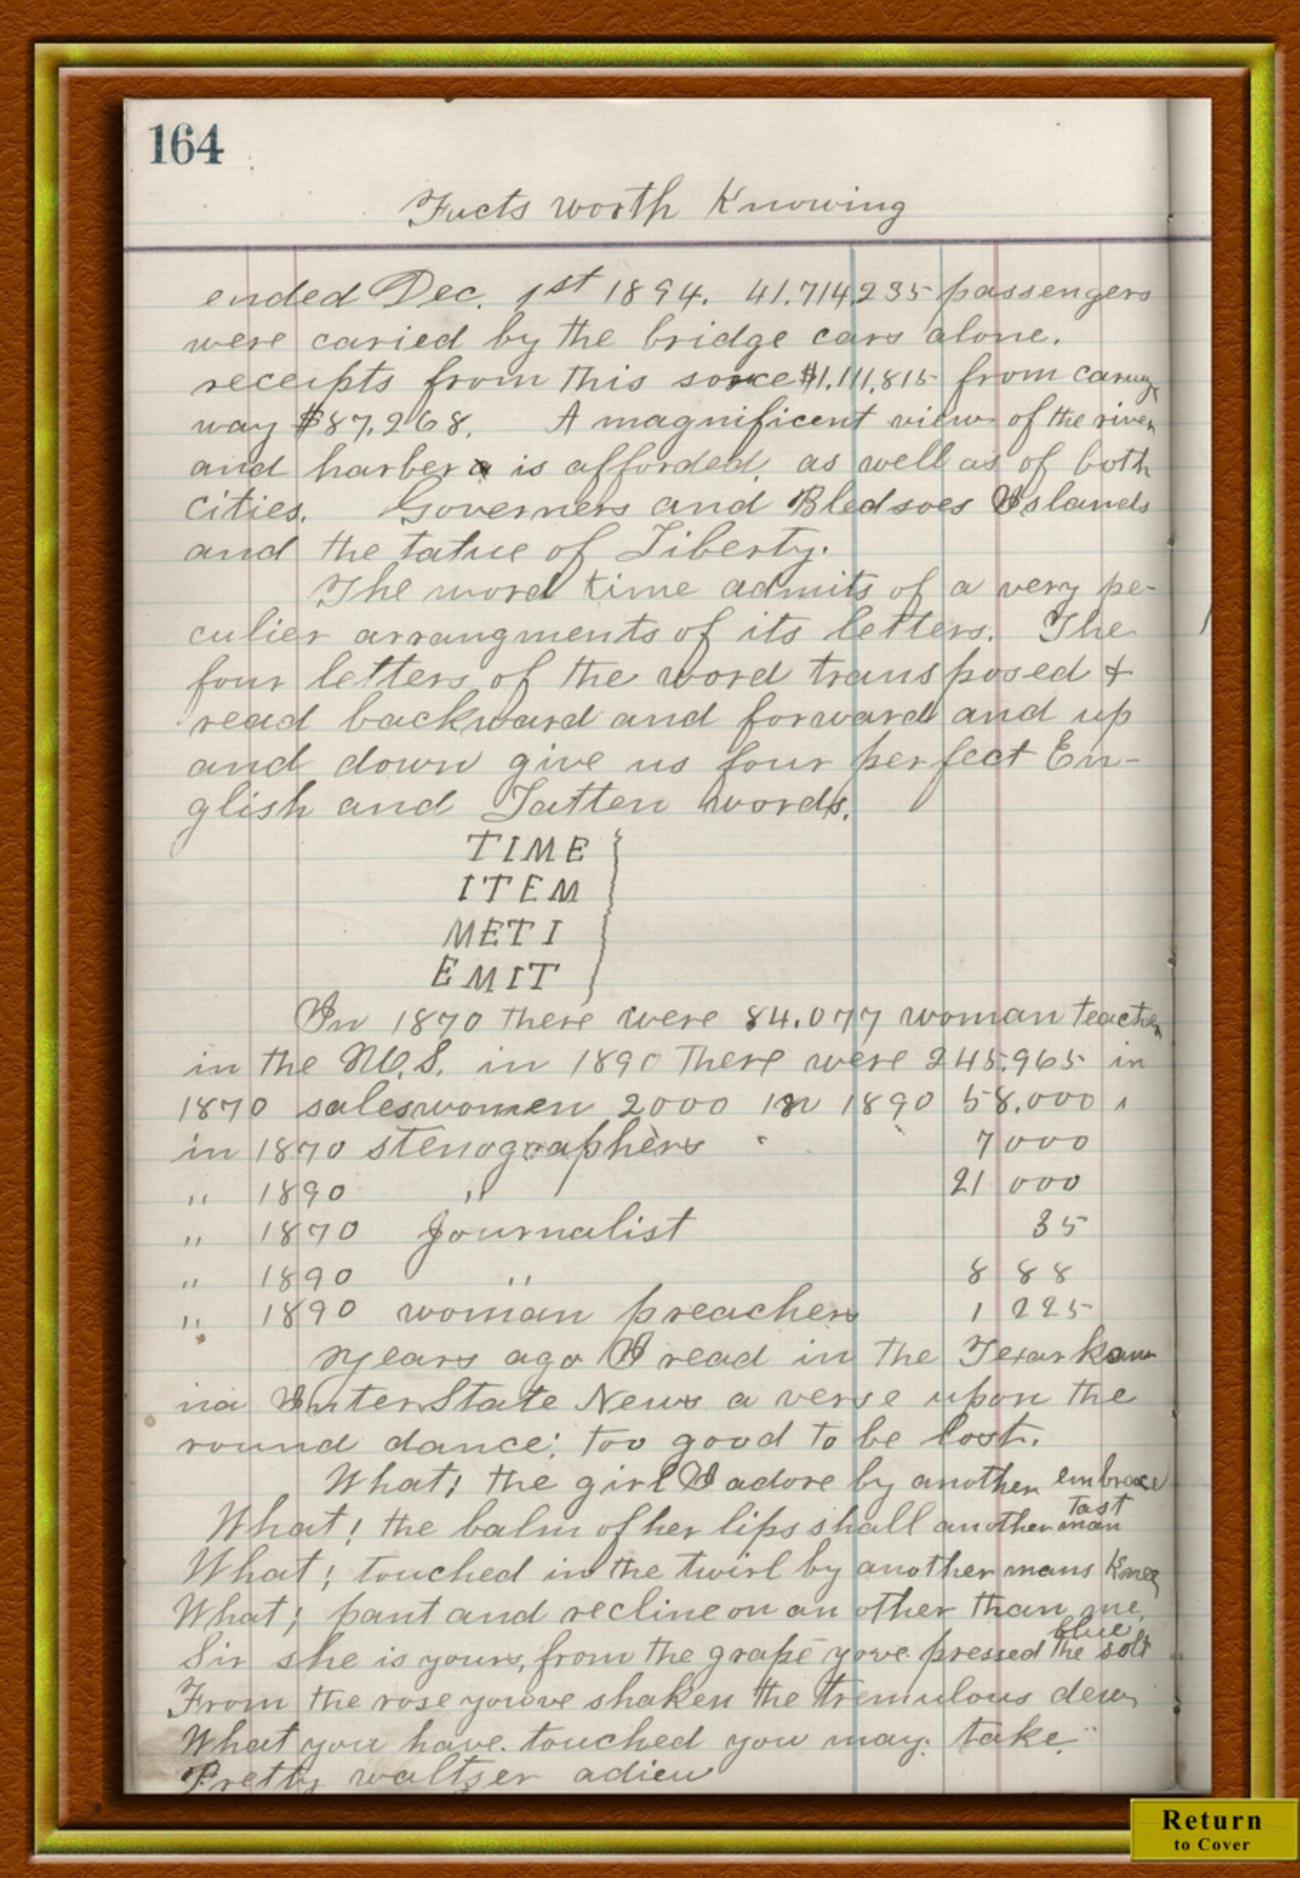 164
Facts worth Knowing
ended Dec. 1st 1894. 41.714.235 passengers
were caried by the bridge cars alone.
receipts from this sorce $1.111.815 from carug
way $87.268. A magnificent view of the river
and harber is afforded as well as of both
cities. Governers and Bledsoes Islands
and the tatue of Liberty.
The word time admits of a very pe-
culier arrangments of its letters. The
four letters of the word transposed &
read backward and forward and up
and down give us four perfect En-
glish and Latten words.
TIME
ITEM
METI
EMIT
In 1870 there were 84.077 woman teacher
in the U.S. in 1890 There were 245.965 in
1870 saleswomen 2000 in 1890 58.000
in 1870 stenographers 7000
" 1890 " 21 000
" 1870 Journalist 35
" 1890 " 8 88
" 1890 woman preachers 1 225
years ago I read in the Texarkan
na InterState News a verse upon the
round dance; too good to be lost.
What! the girl I adore by another embrace
tast
What! the balm of her lips shall another man
What! touched in the twirl by another mans knee
What; pant and recline on an other than me.
blue
Sir she is yours, from the grape yove pressed the soft
From the rose youve shaken the tremulous dew,
What you have touched you may take."
Pretty waltser adieu
Return
to Cover